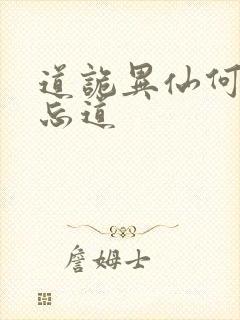 道詭異仙何
忘道
詹姆士